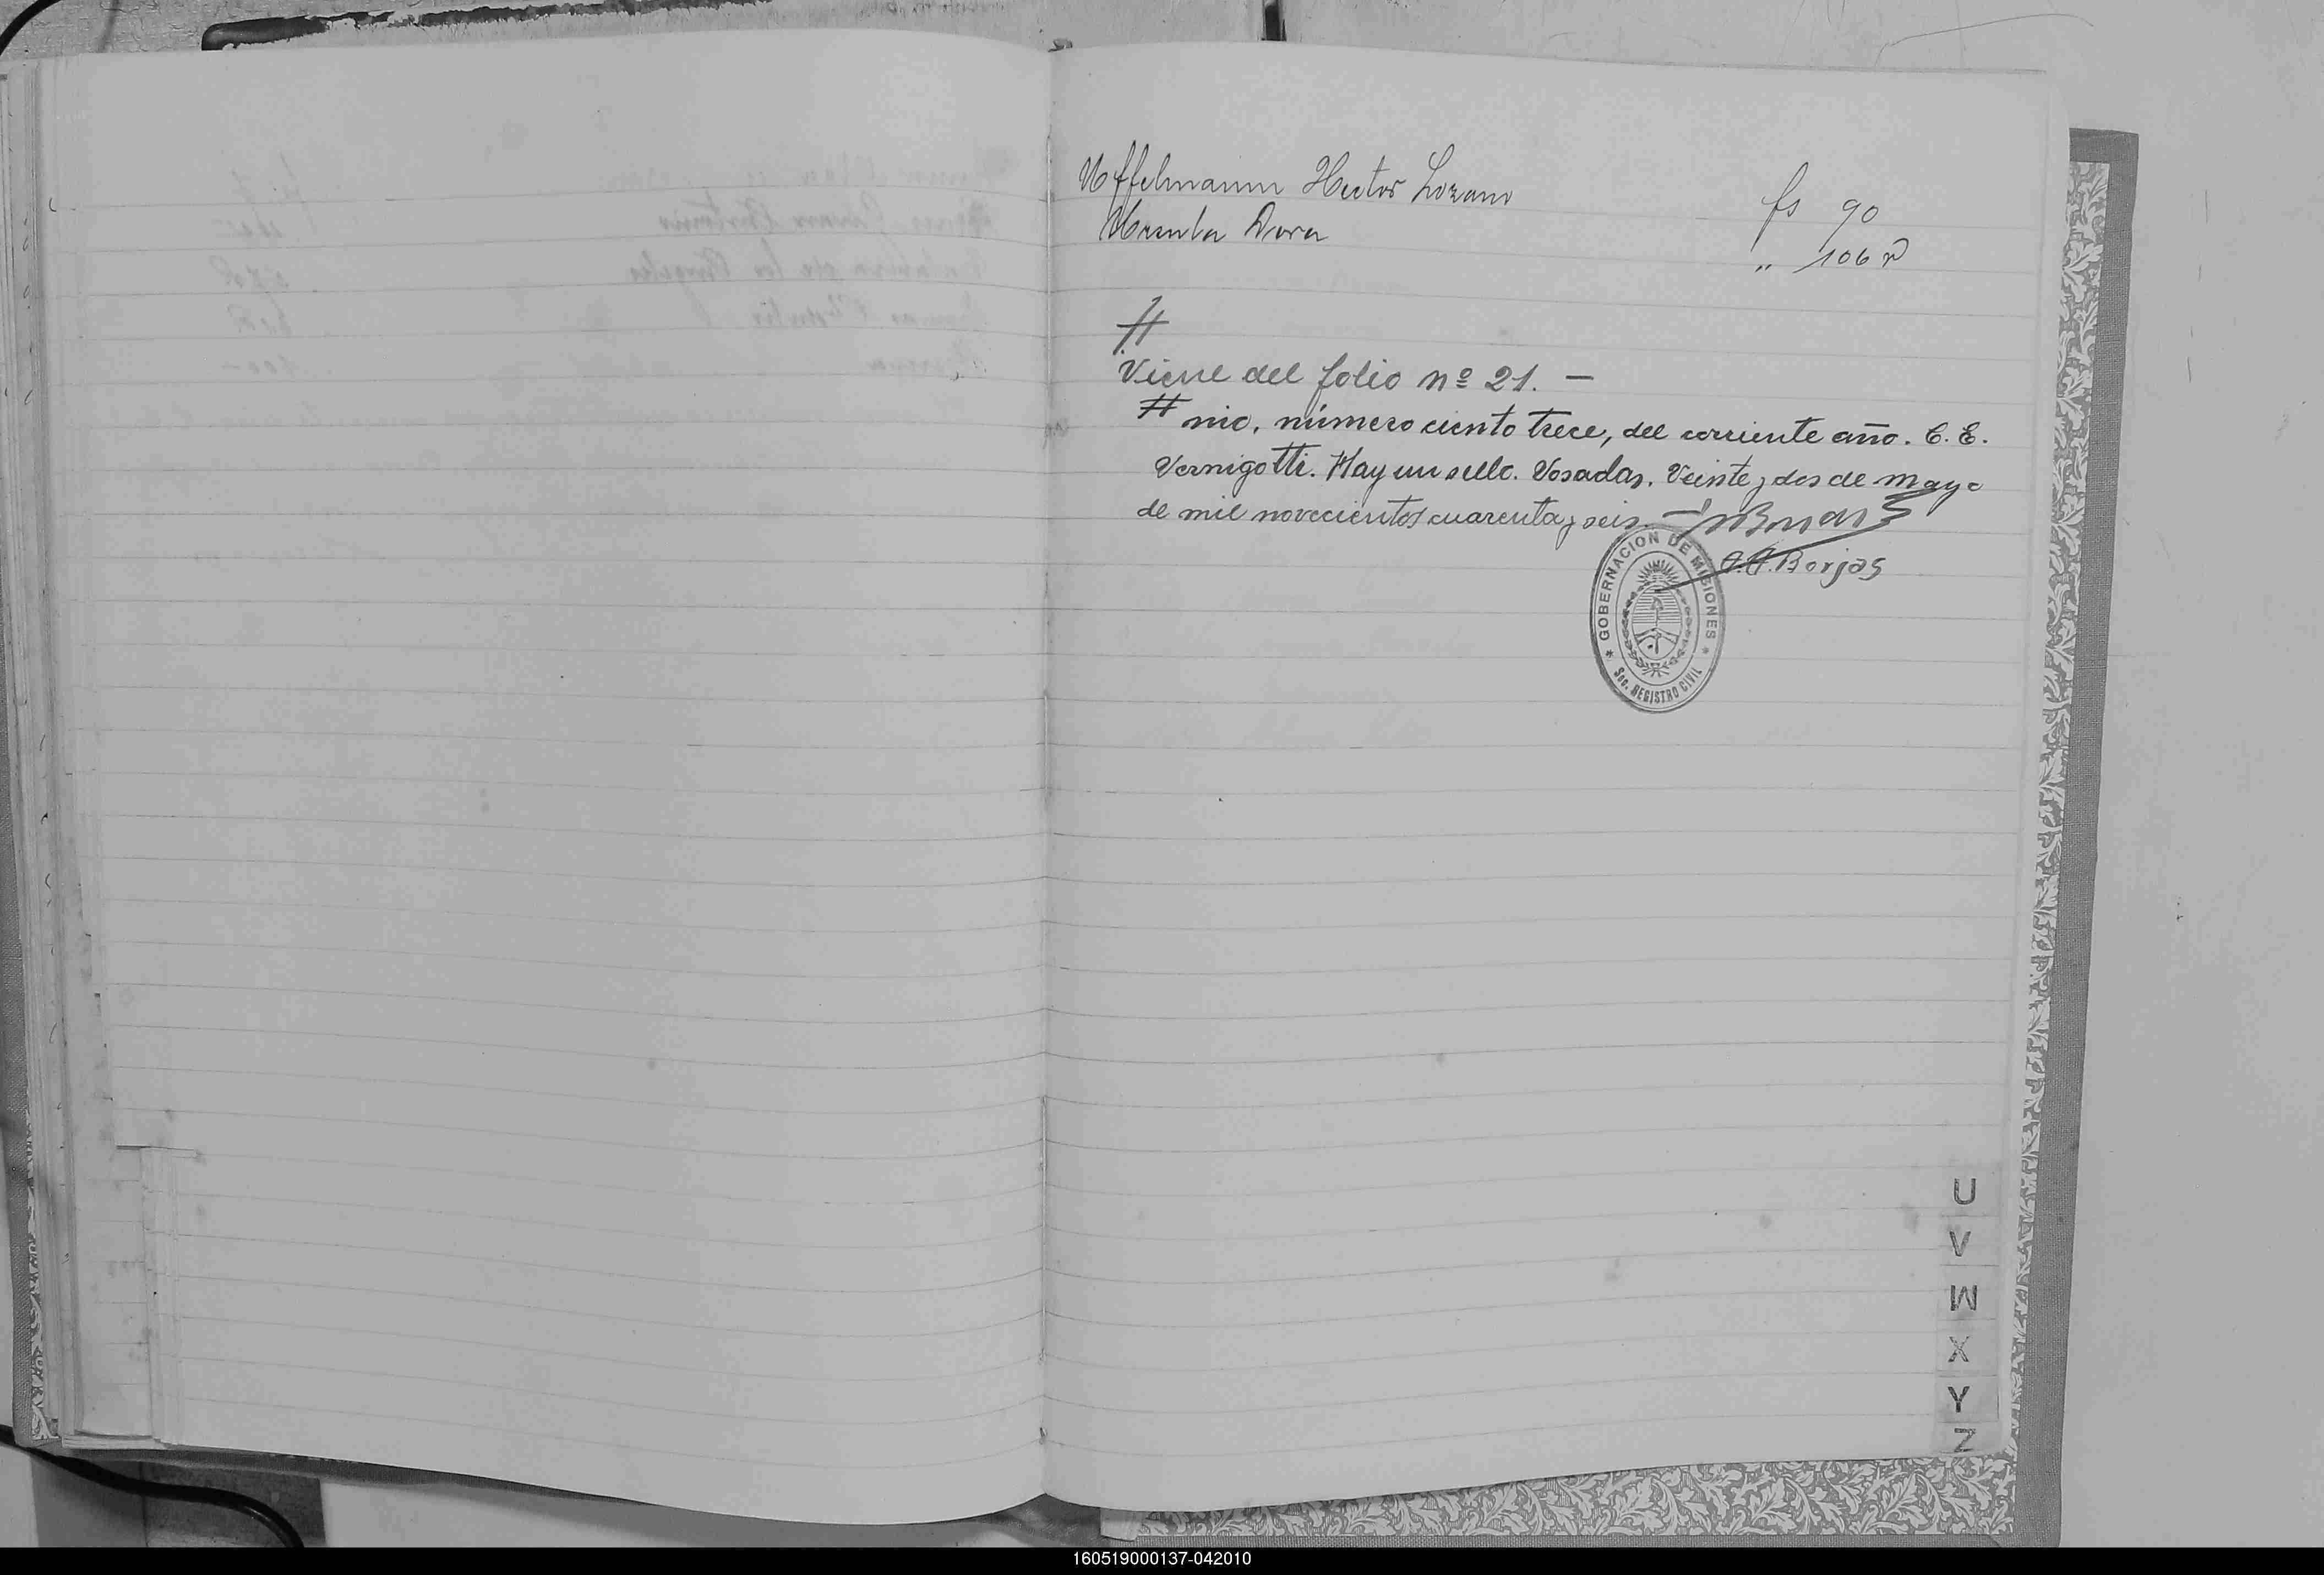 Uffelmann Hector Lozano fs 90
Ursula Dora " 106 v
#
Viene del folio nº 21. —
# nio, número ciento trece, del corriente año. C. E.
Vernigotti. Hay un sello. Posadas. Veinte y dos de mayo
de mil novecientos cuarenta y seis. —
Borjas
GOBERNACION DE MISIONES
Sec. REGISTRO CIVIL
U
V
W
X
Y
Z
160519000137-042010